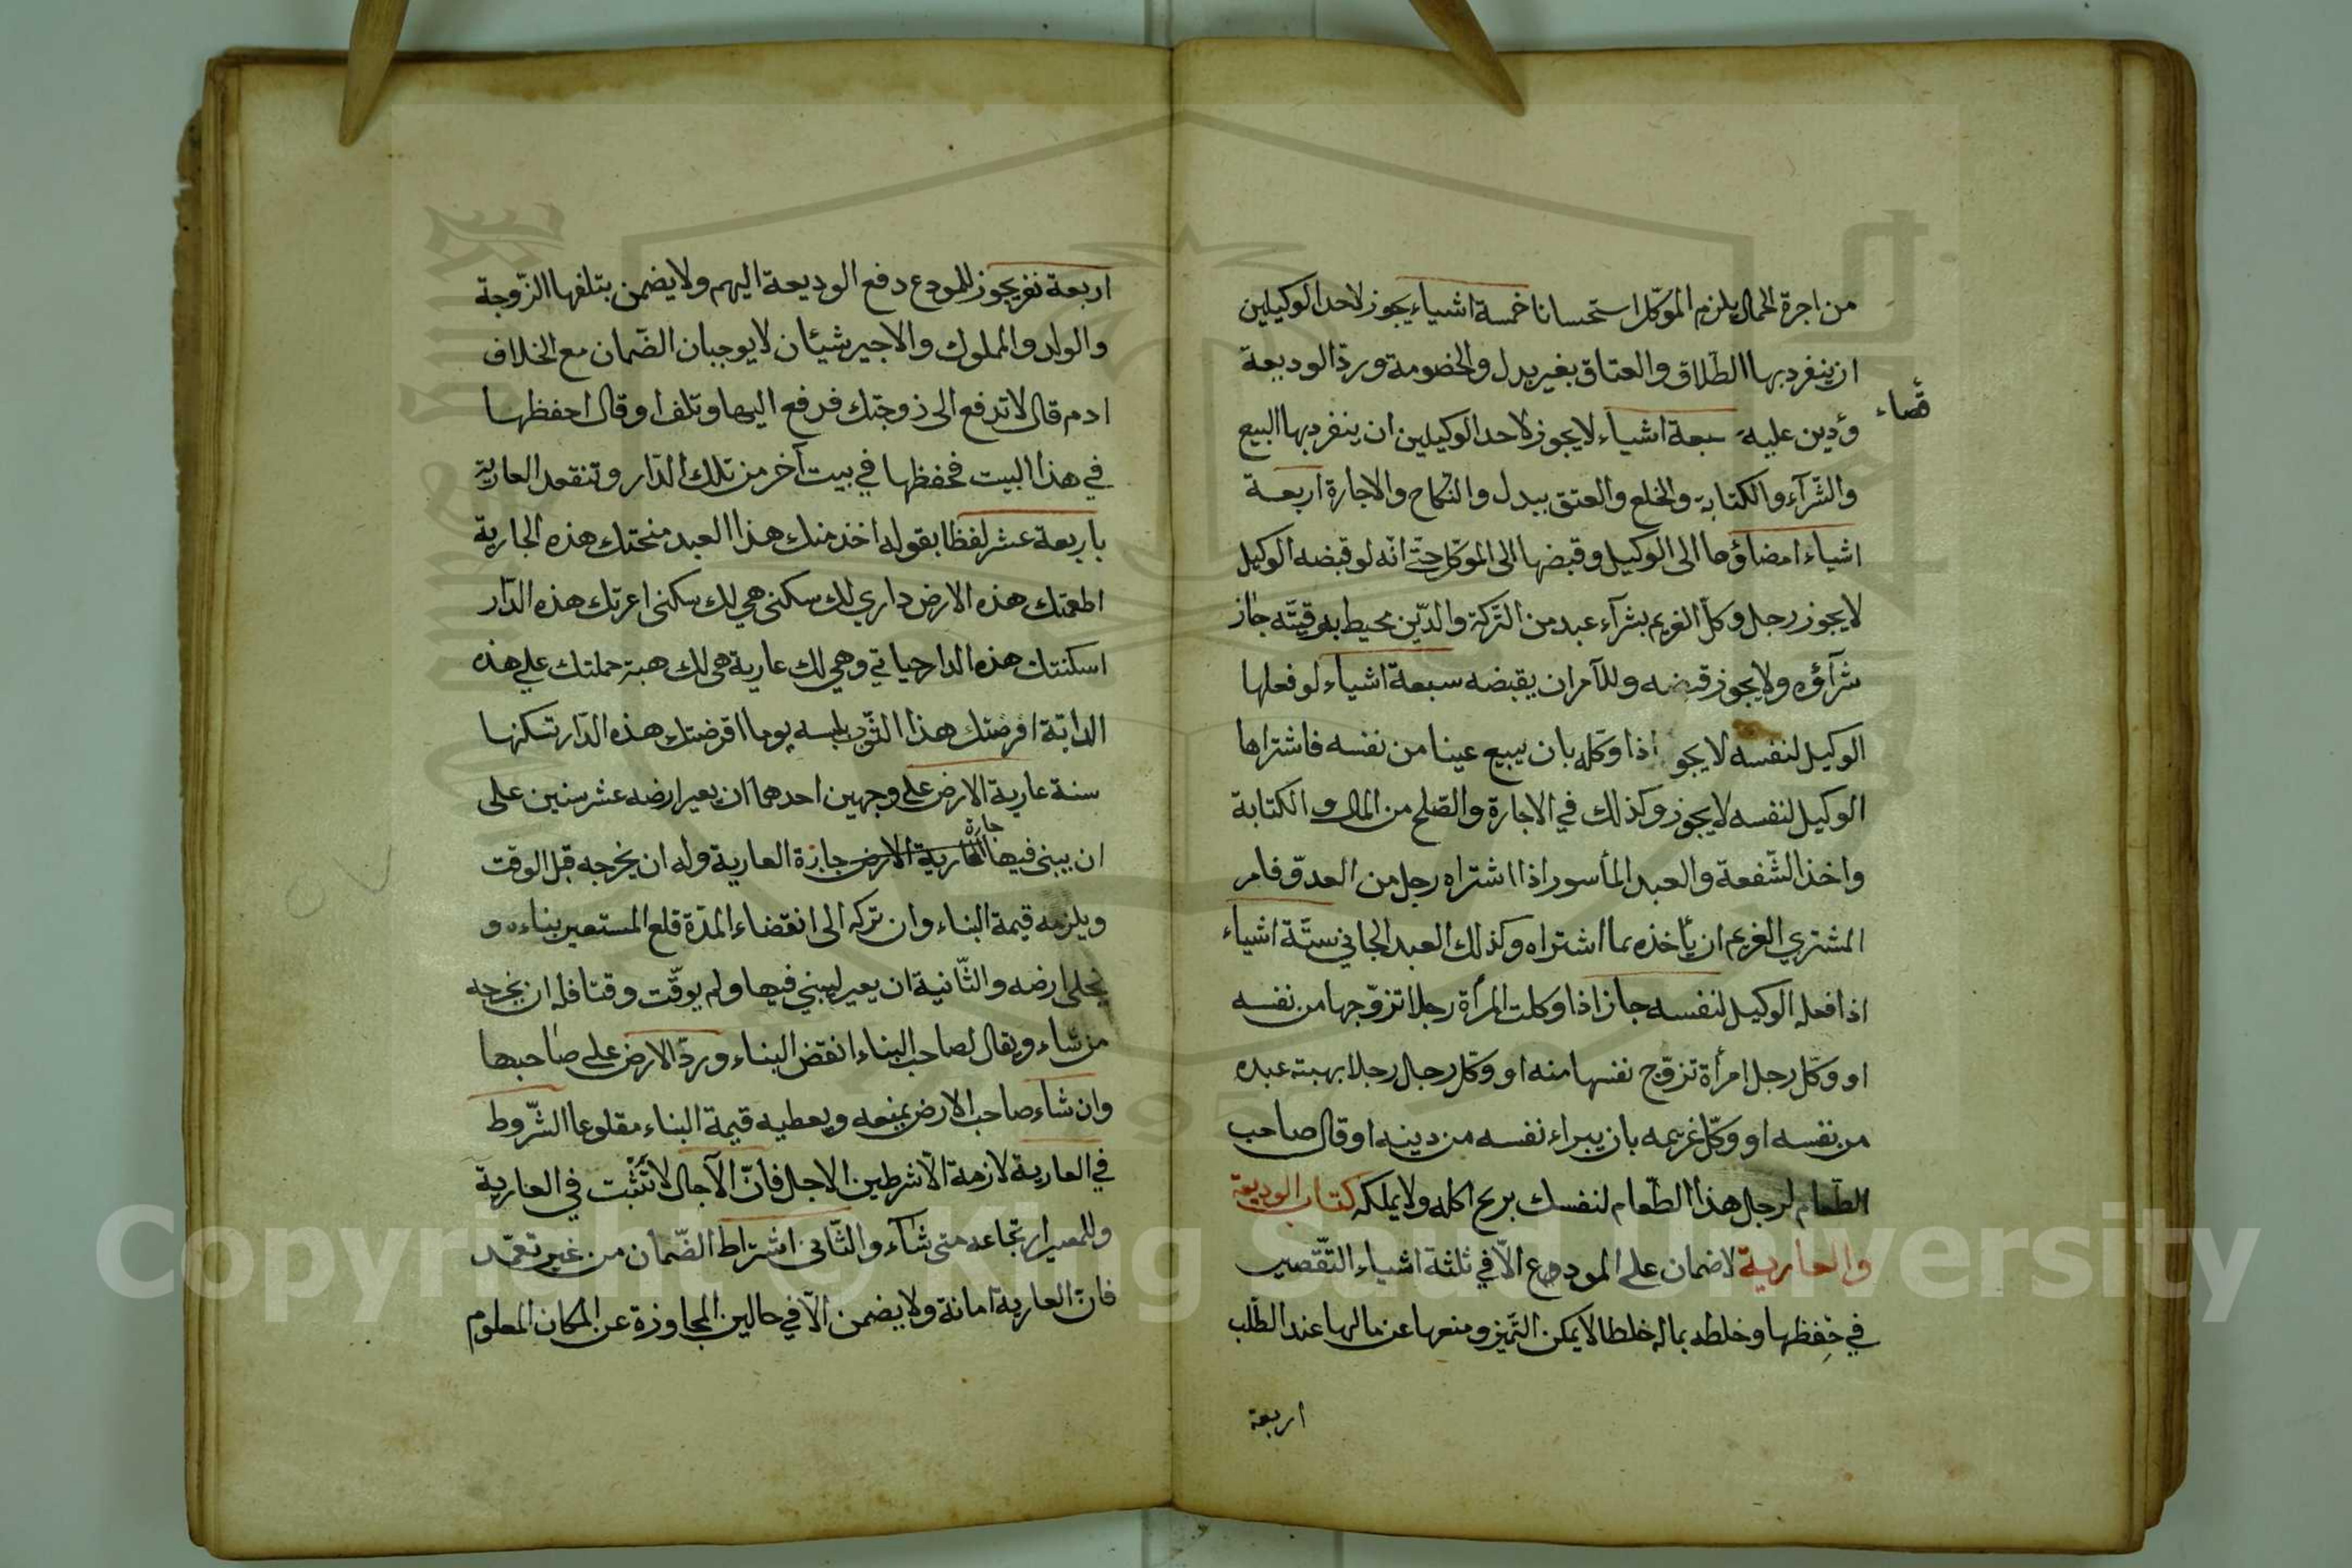 من اجرة الحمال يلزم الموكّل استحسانا خمسة اشياء يجوز لاحد الوكيلين
ان ينفرد بها الطّلاق والعتاق بغير بدل والخصومة وردّ الوديعة
قضاء
ودين عليه سبعة اشياء لا يجوز لاحد الوكيلين ان ينفرد بها البيع
والشّرآء والكتابة والخلع والعتق ببدل والنّكاح والاجارة اربعة
اشياء امضاؤها الى الوكيل وقبضها الى الموكّل حتّى انّه لو قبضه الوكيل
لا يجوز رجل وكّل الغريم بشرآء عبد من التّركة والدّين محيط برقبته جاز
شرآؤه ولا يجوز قبضه وللآمر ان يقبضه سبعة اشياء لو فعلها
الوكيل لنفسه لا يجو اذا وكّله بان يبيع عينا من نفسه فاشتراها
الوكيل لنفسه لا يجوز وكذلك في الاجارة والصّلح من المال و الكتابة
واخذ الشّفعة والعبد المأسور اذا اشتراه رجل من العدوّ فامر
المشتري الغريم ان يأخذه بما اشتراه وكذلك العبد الجاني ستّة اشياء
اذا فعله الوكيل لنفسه جاز اذا وكلت المرأة رجلا تزوّجها من نفسه
او وكّل رجل امرأة تزوّج نفسها منه او وكّل رجل رجلا بهبة عبده
من نفسه او وكّل غريمه بان يبراء نفسه من دينه او قال صاحب
الطّعام لرجل هذا الطّعام لنفسك اكله ولا يملكه كتاب الوديعة
والعارية لا ضمان على المودع الّا في ثلثة اشياء التّقصير
في حفظها وخلطه بماله خلطا لا يمكن التّميز ومنعها عن مالها عند الطّلب
اربعة
اربعة نفر يجوز للمودع دفع الوديعة اليهم ولا يضمن بتلفها الزّوجة
والولد والمملوك والاجير شيئان لا يوجبان الضّمان مع الخلاف
قال لا تدفع الى زوجتك فدفع اليها وتلف او قال احفظها
في هذا البيت فحفظها في بيت آخر من تلك الدّار وتنقعد العارية
باربعة عشر لفظا بقوله اخذ منك هذا العبد منحتك هذه الجارية
اطعمتك هذه الارض داري لك سكنى هي لك سكنى اعرتك هذه الدّار
اسكنتك هذه الدار حياتي وهي لك عارية هي لك هبة حملتك على هذه
الدابّة اقرضتك هذا الثّوب يلبسه يوما اقرضتك هذه الدّار تسكنها
سنة عارية الارض على وجهين احدهما ان يعير ارضه عشر سنين على
ان يبنى فيها العارية الارض جائزة العارية وله ان يخرجه قبل الوقت
ويلزمه قيمة البناء وان تركه الى انقضاء المدّة قلع المستعير بناءه و
يخلى ارضه والثّانية ان يعير ليبني فيها ولم يوقّت وقتا فله ان يخرجه
من شاء ويقال لصاحب البناء انقض البناء وردّ الارض على صاحبها
وان شاء صاحب الارض يمنعه ويعطيه قيمة البناء مقلوعا الشّروط
في العارية لازمة الّا شرطين الاجل فانّ الآجال لا تثبت في العارية
وللمعير ارتجاعه متى شآء والثّانى اشتراط الضّمان من غير تعمّد
فانّ العارية امانة ولا يضمن الّا في حالين المجاوزة عن المكان المعلوم
Copyright © King Saud University